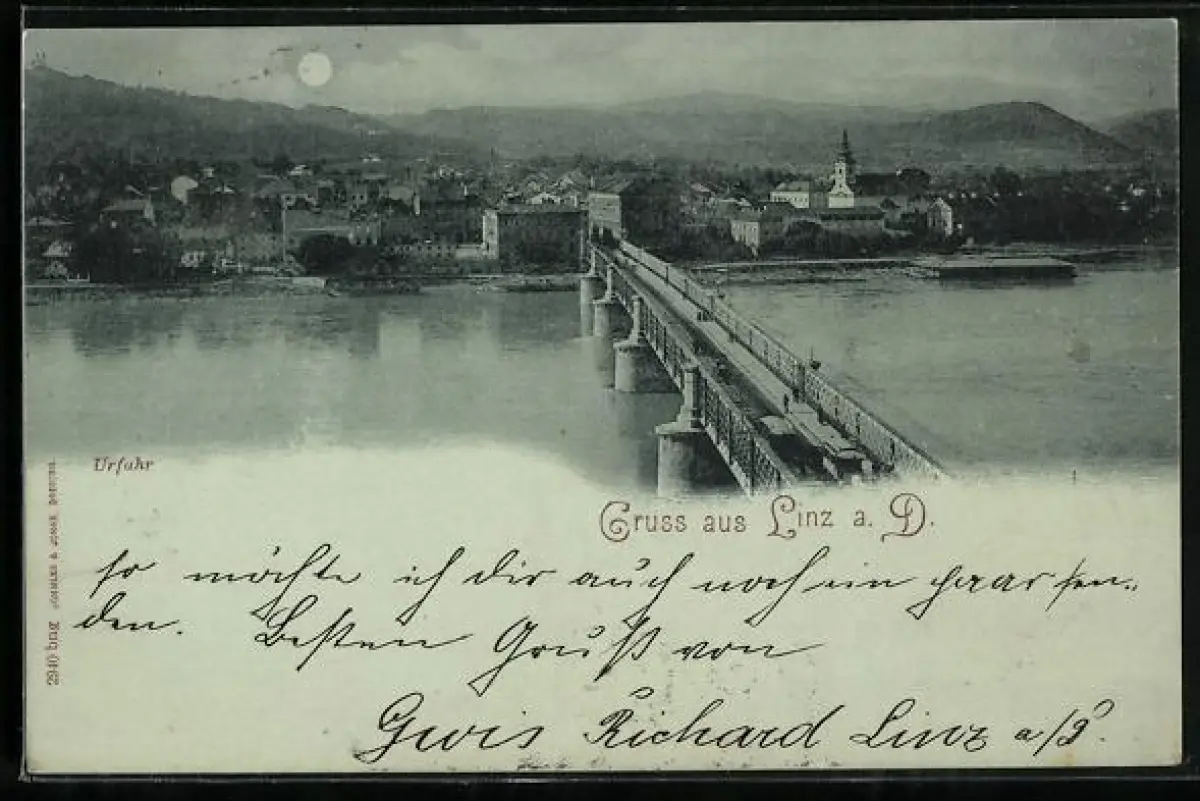 Urfahr
Gruss aus Linz a. D.
2940 bng
so möchte ich dir auch noch ein paar sen-
den. Besten Gruß von
Richard Linz a/D.